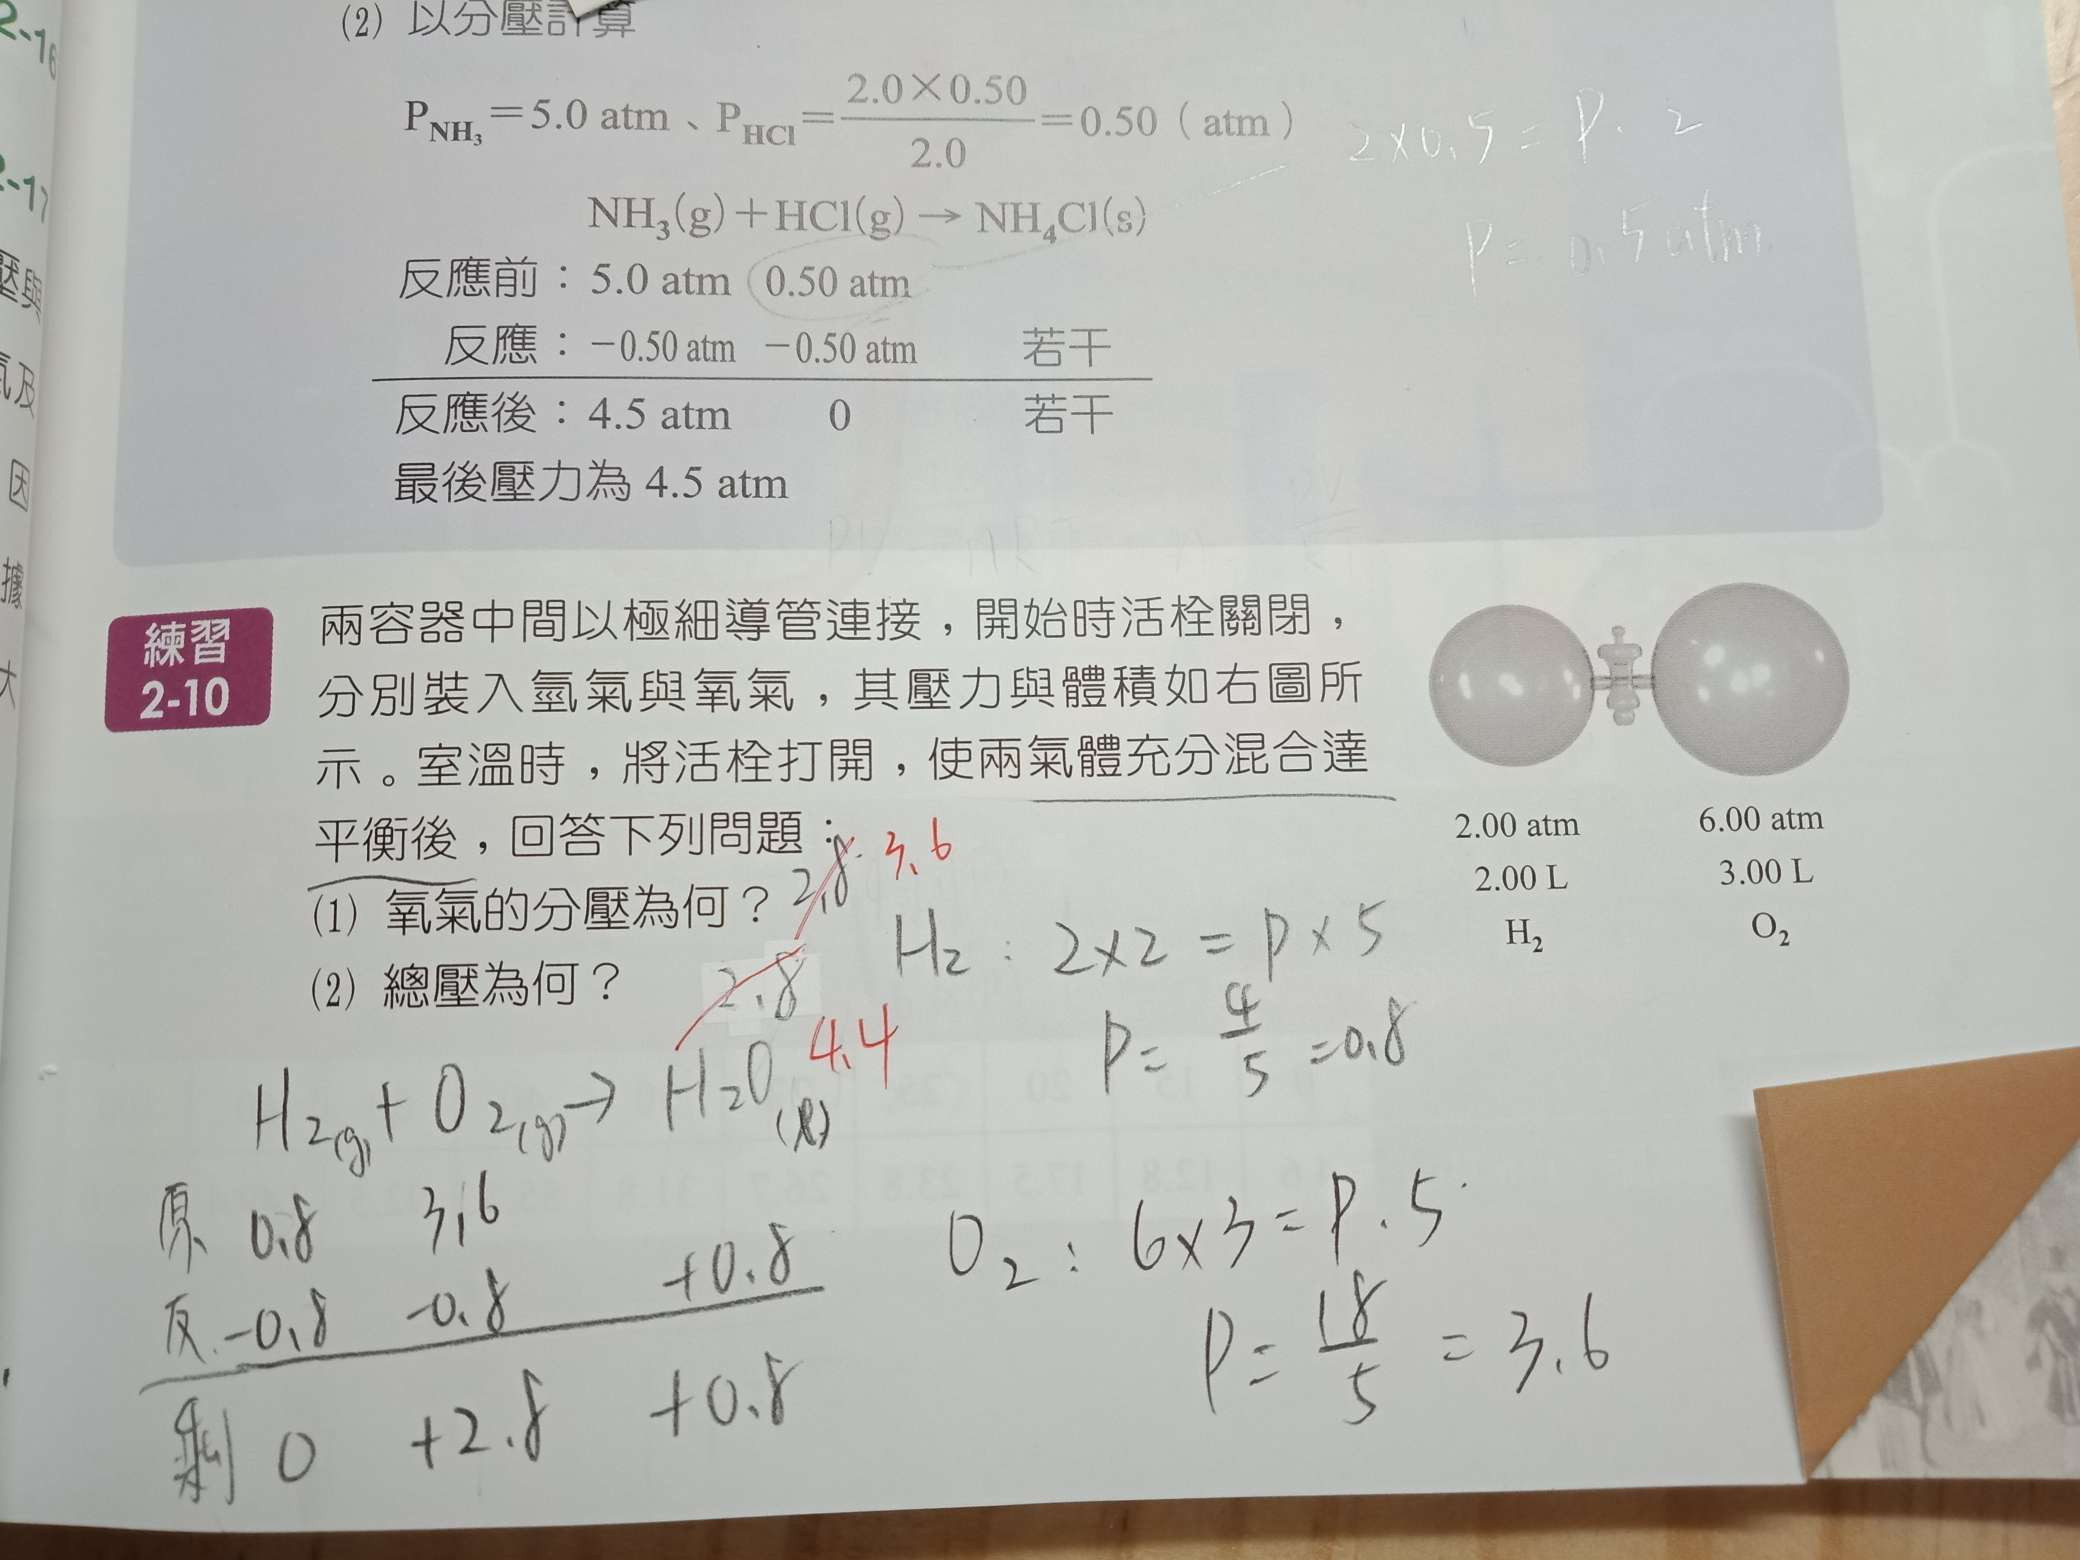 2-16
(2) 以分壓計算
P_NH₃＝5.0 atm、P_HCl＝2.0×0.50/2.0＝0.50（atm）
2×0.5=P·2
P=0.5atm
NH₃(g)＋HCl(g)→NH₄Cl(s)
反應前：5.0 atm 0.50 atm
反應：−0.50 atm −0.50 atm 若干
反應後：4.5 atm 0 若干
最後壓力為 4.5 atm
2-17
壓與
氣及
因
據
大
練習
2-10
兩容器中間以極細導管連接，開始時活栓關閉，
分別裝入氫氣與氧氣，其壓力與體積如右圖所
示。室溫時，將活栓打開，使兩氣體充分混合達
平衡後，回答下列問題：
(1) 氧氣的分壓為何？ 2.8 3.6
(2) 總壓為何？ 2.8 4.4
2.00 atm 6.00 atm
2.00 L 3.00 L
H₂ O₂
H₂(g)+O₂(g)→H₂O(l)
原 0.8 3.6
反 -0.8 -0.8 +0.8
剩 0 +2.8 +0.8
H₂: 2×2=P×5
P=4/5=0.8
O₂: 6×3=P·5
P=18/5=3.6